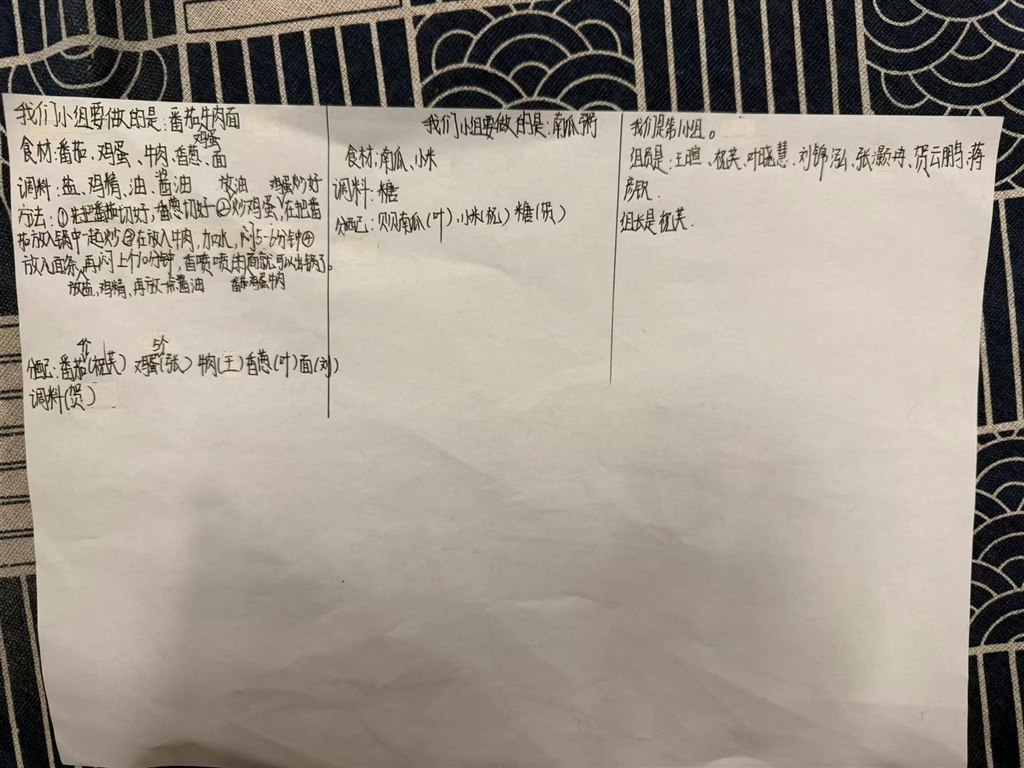 我们小组要做的是:番茄牛肉面
鸡蛋
食材:番茄、鸡蛋、牛肉、香葱、面
调料:盐、鸡精、油、酱油
放油 鸡蛋炒好
方法:①先把番茄切好,香葱切好②炒鸡蛋,在把番
茄放入锅中一起炒③在放入牛肉,加水,闷5-6分钟④
放入面条,再闷上个10分钟,香喷喷的面就可以出锅了。
放盐,鸡精、再放一点酱油 番茄鸡蛋牛肉
4个 5个
分配:番茄(杭芙) 鸡蛋(张) 牛肉(王)香葱(叶)面(刘)
调料(贺)
我们小组要做的是:南瓜粥
食材:南瓜、小米
调料:糖
分配:贝贝南瓜(叶)、小米(杭) 糖(贺)
我们是第1小组。
组员是:王暄、杭芙、叶晓慧、刘锦泓、张灏冉、贺云鹏、蒋
彦
组长是杭芙.